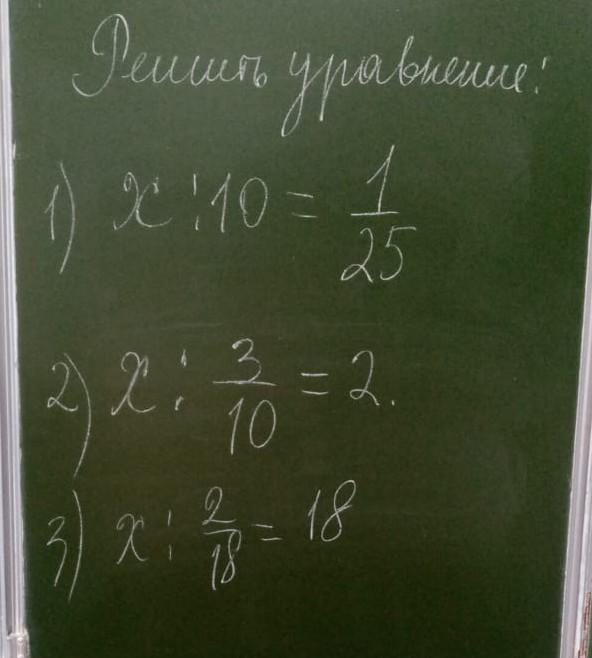 Решить уравнение:
1) x : 10 = 1/25
2) x : 3/10 = 2.
3) x : 2/18 = 18